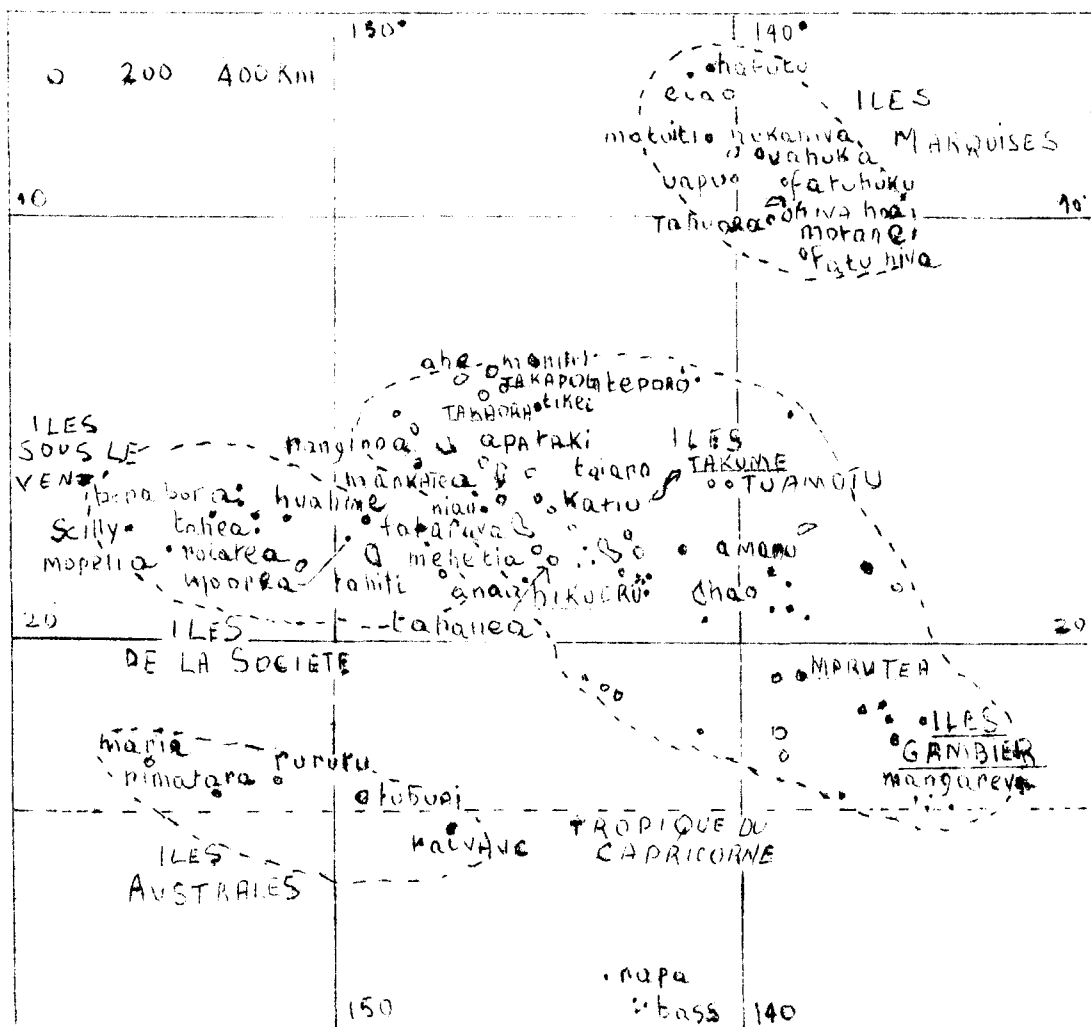 150°
140°
0 200 400 Km
hatutu
eiao
ILES
MARQUISES
motuiti nukahiva
vahuka
uapu
fatuhuku
10
10°
Tahuara
HIVA hoai
motane
Fatu hiva
ahe manihi
TAKAPOTA tepoto
TAKAORA tikei
ILES
SOUS LE
VENT
rangiroa
apataki
ILES
TAKUME
TUAMOTU
mankatea
taiaro
bora bora
huahine
niau
katiu
Scilly
tahea
fakarava
mopelia
raiatea
mehetia
amanu
moorea
tahiti
anaa
hikueru
hao
20
20
ILES
DE LA SOCIETE
tahanea
MARUTEA
ILES
GAMBIER
mangareva
maria
rimatara
rurutu
tubuai
raivave
TROPIQUE DU
CAPRICORNE
ILES
AUSTRALES
rapa
bass
150
140